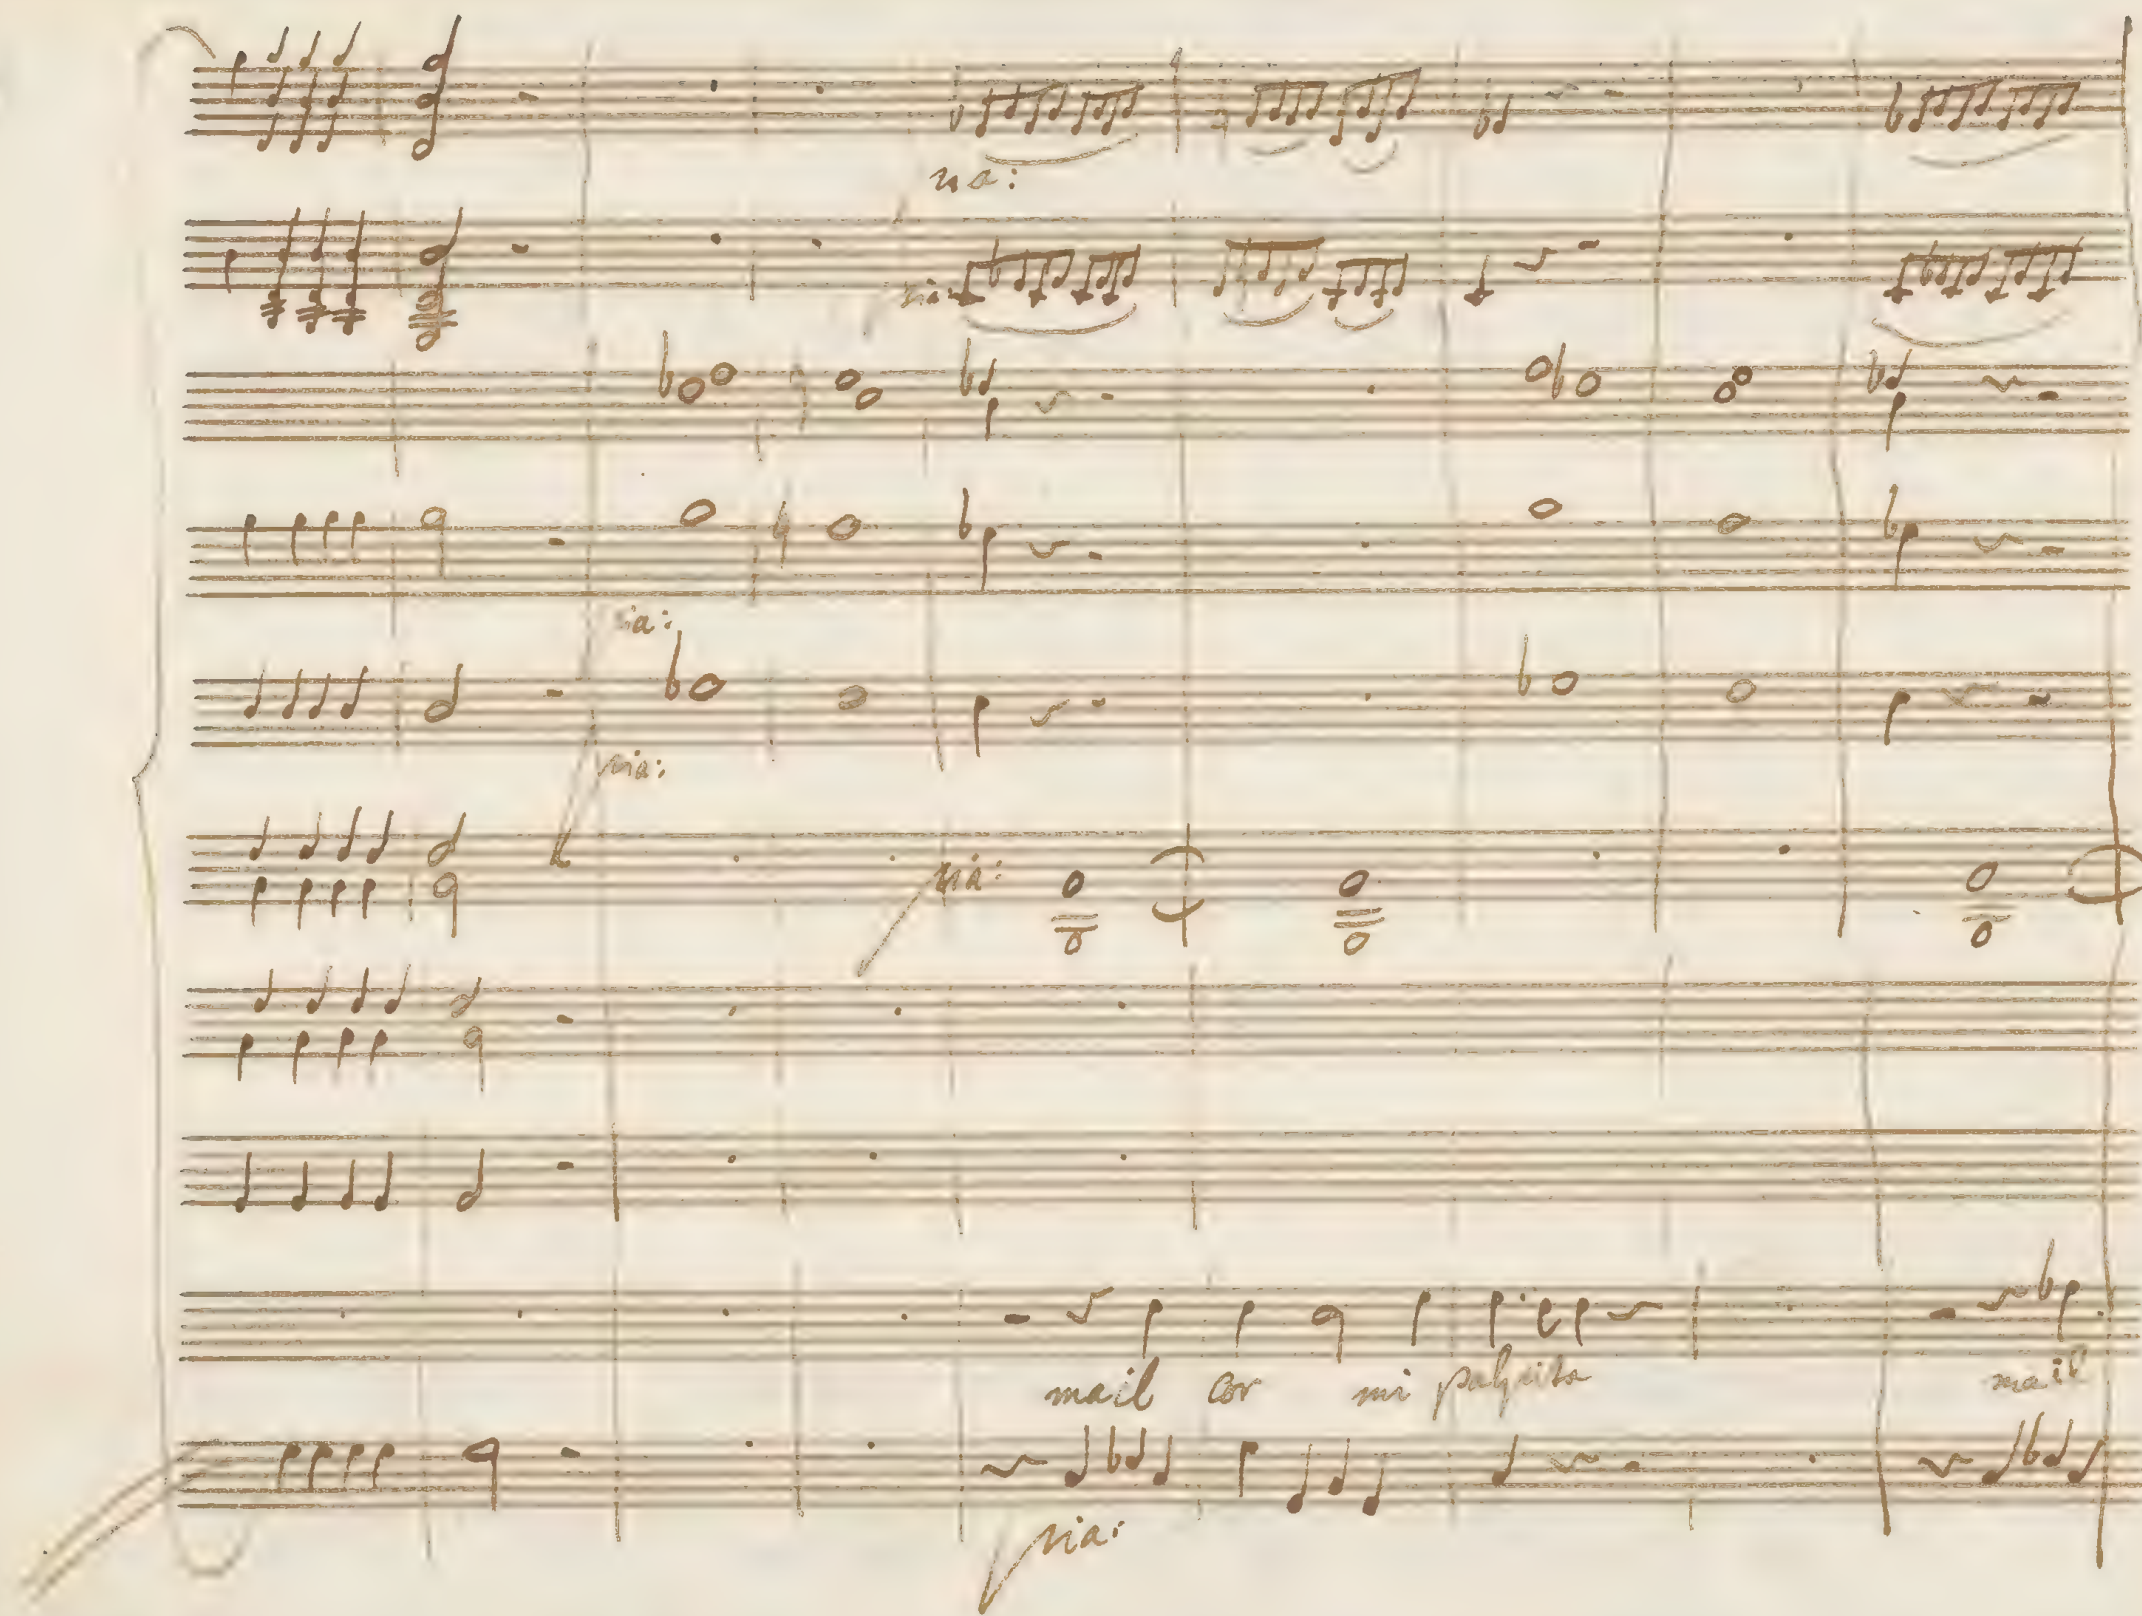 pia:
pia:
pia:
pia:
pia:
mail cor mi palpita mail
pia: